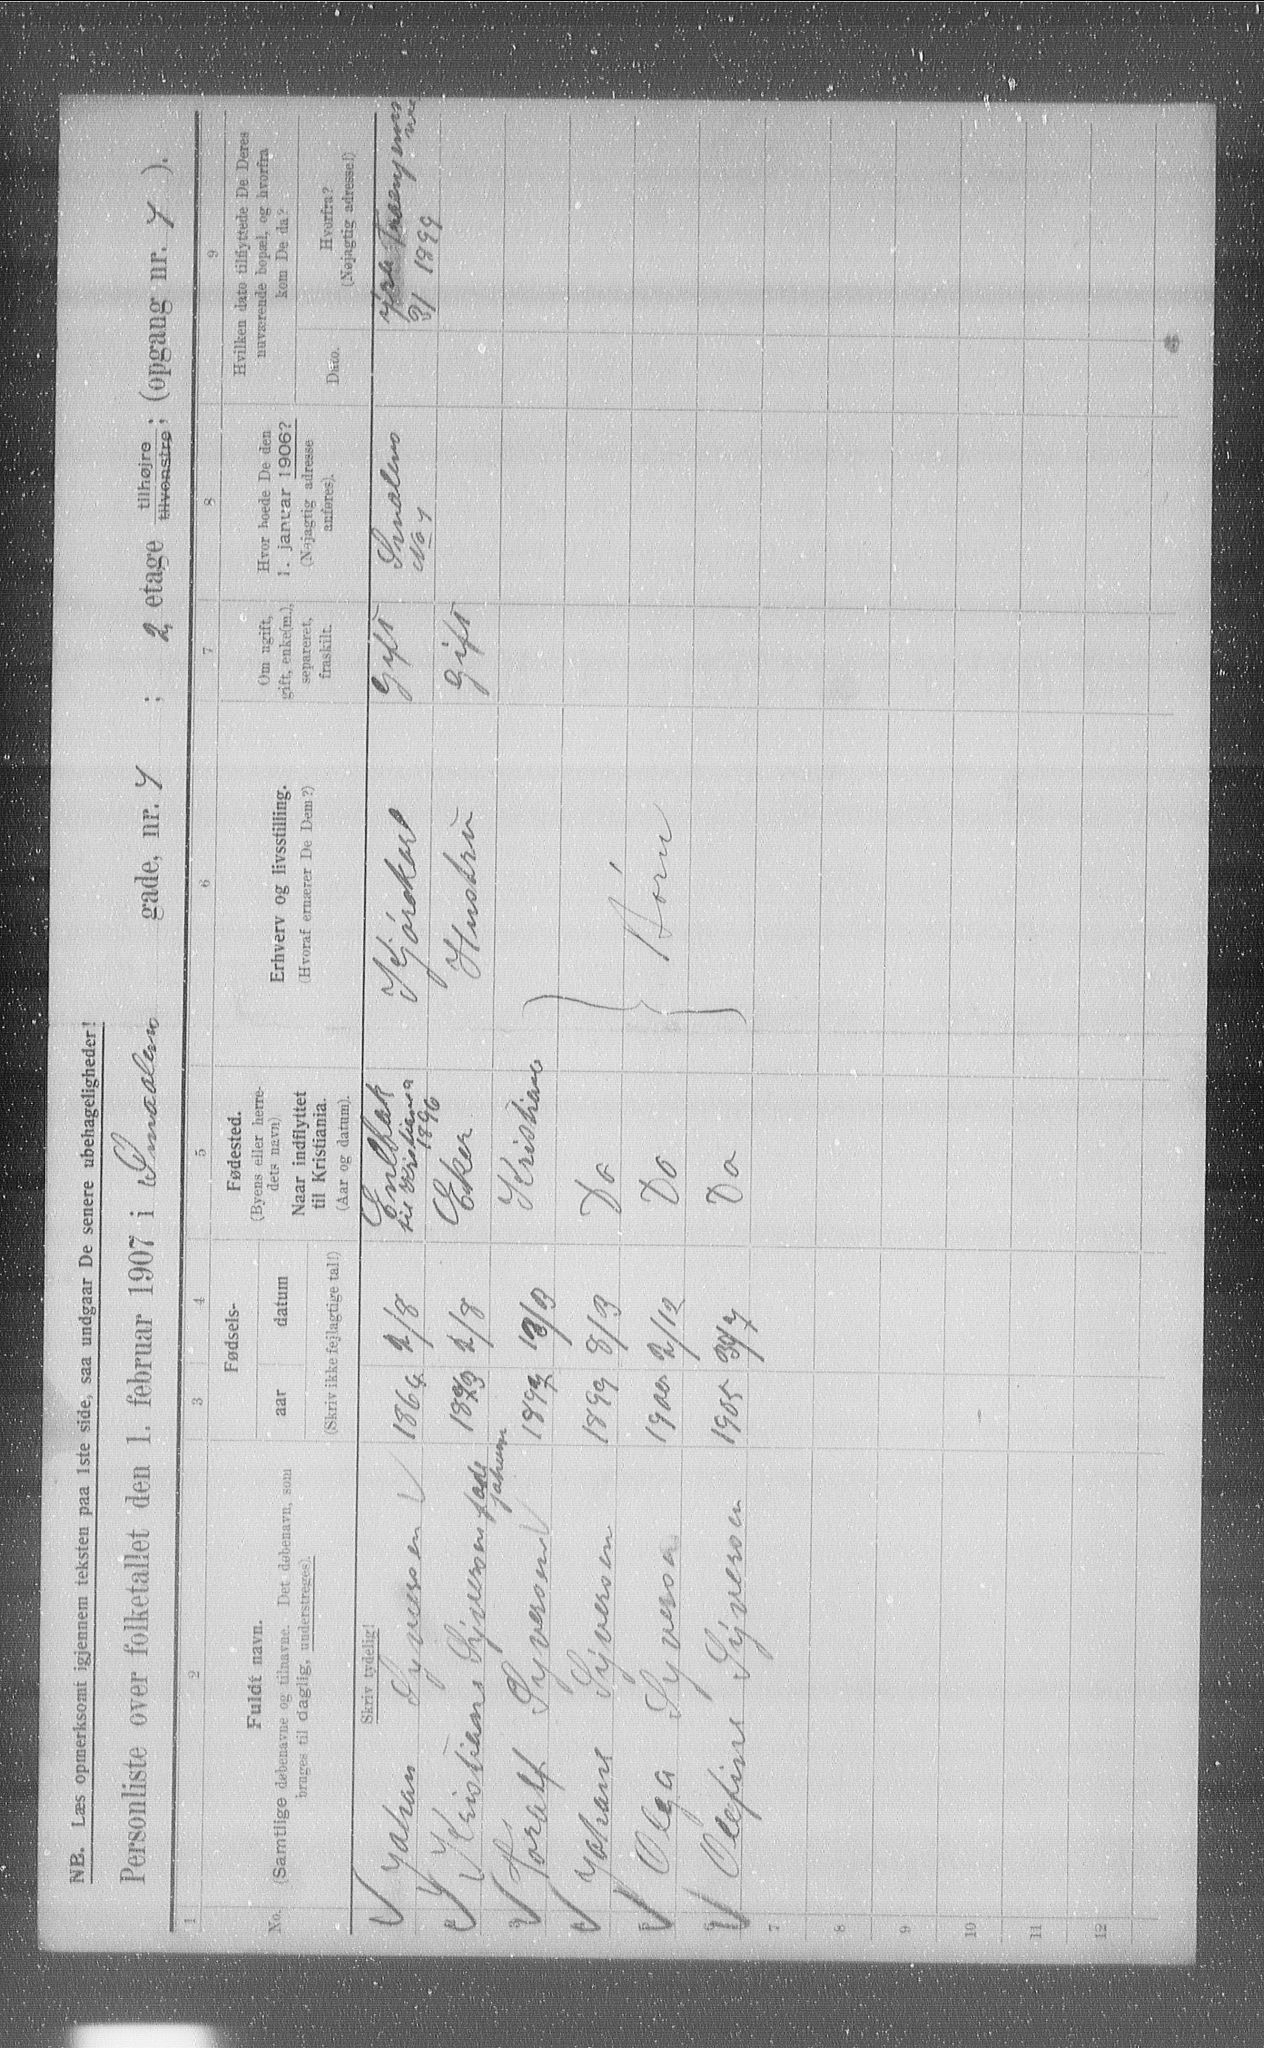 NB. Læs opmerksomt igjennem teksten paa 1ste side, saa undgaar De senere ubehageligheder!
Personliste over folketallet den 1. februar 1907 i Smaalens gade, nr. 7 ; 2 etage tilhøjre tilvenstre; (opgang nr. 7 ).
1 2 3 4 5 6 7 8 9
No. Fuldt navn. (Samtlige døbenavne og tilnavne. Det døbenavn, som bruges til daglig, understreges).
Fødsels- aar datum (Skriv ikke fejlagtige tal!)
Fødested. (Byens eller herredets navn) Naar indflyttet til Kristiania. (Aar og datum).
Erhverv og livsstilling. (Hvoraf ernærer De Dem?)
Om ugift, gift, enke(m.), separeret, fraskilt.
Hvor boede De den 1. januar 1906? (Nøjagtig adresse anføres).
Hvilken dato tilflyttede De Deres nuværende bopæl, og hvorfra kom De da?
Dato. Hvorfra? (Nøjagtig adresse!)
Skriv tydelig!
Johan Syversen 1864 2/8 til Kristiania 1896 Kjørekarl Gift Smalens No 7 3/ 1899
Kristiane Syversen fød Johansen 2/8 Eker Hustru Gift
3 Toralf Syversen Kristiania
Johane Syversen 1899 8/3 Do
Børn
5 Olga Syversen 1900 2/12 Do
6 Olefine Syversen 1905 30/7 Do
7
8
9
10
11
12